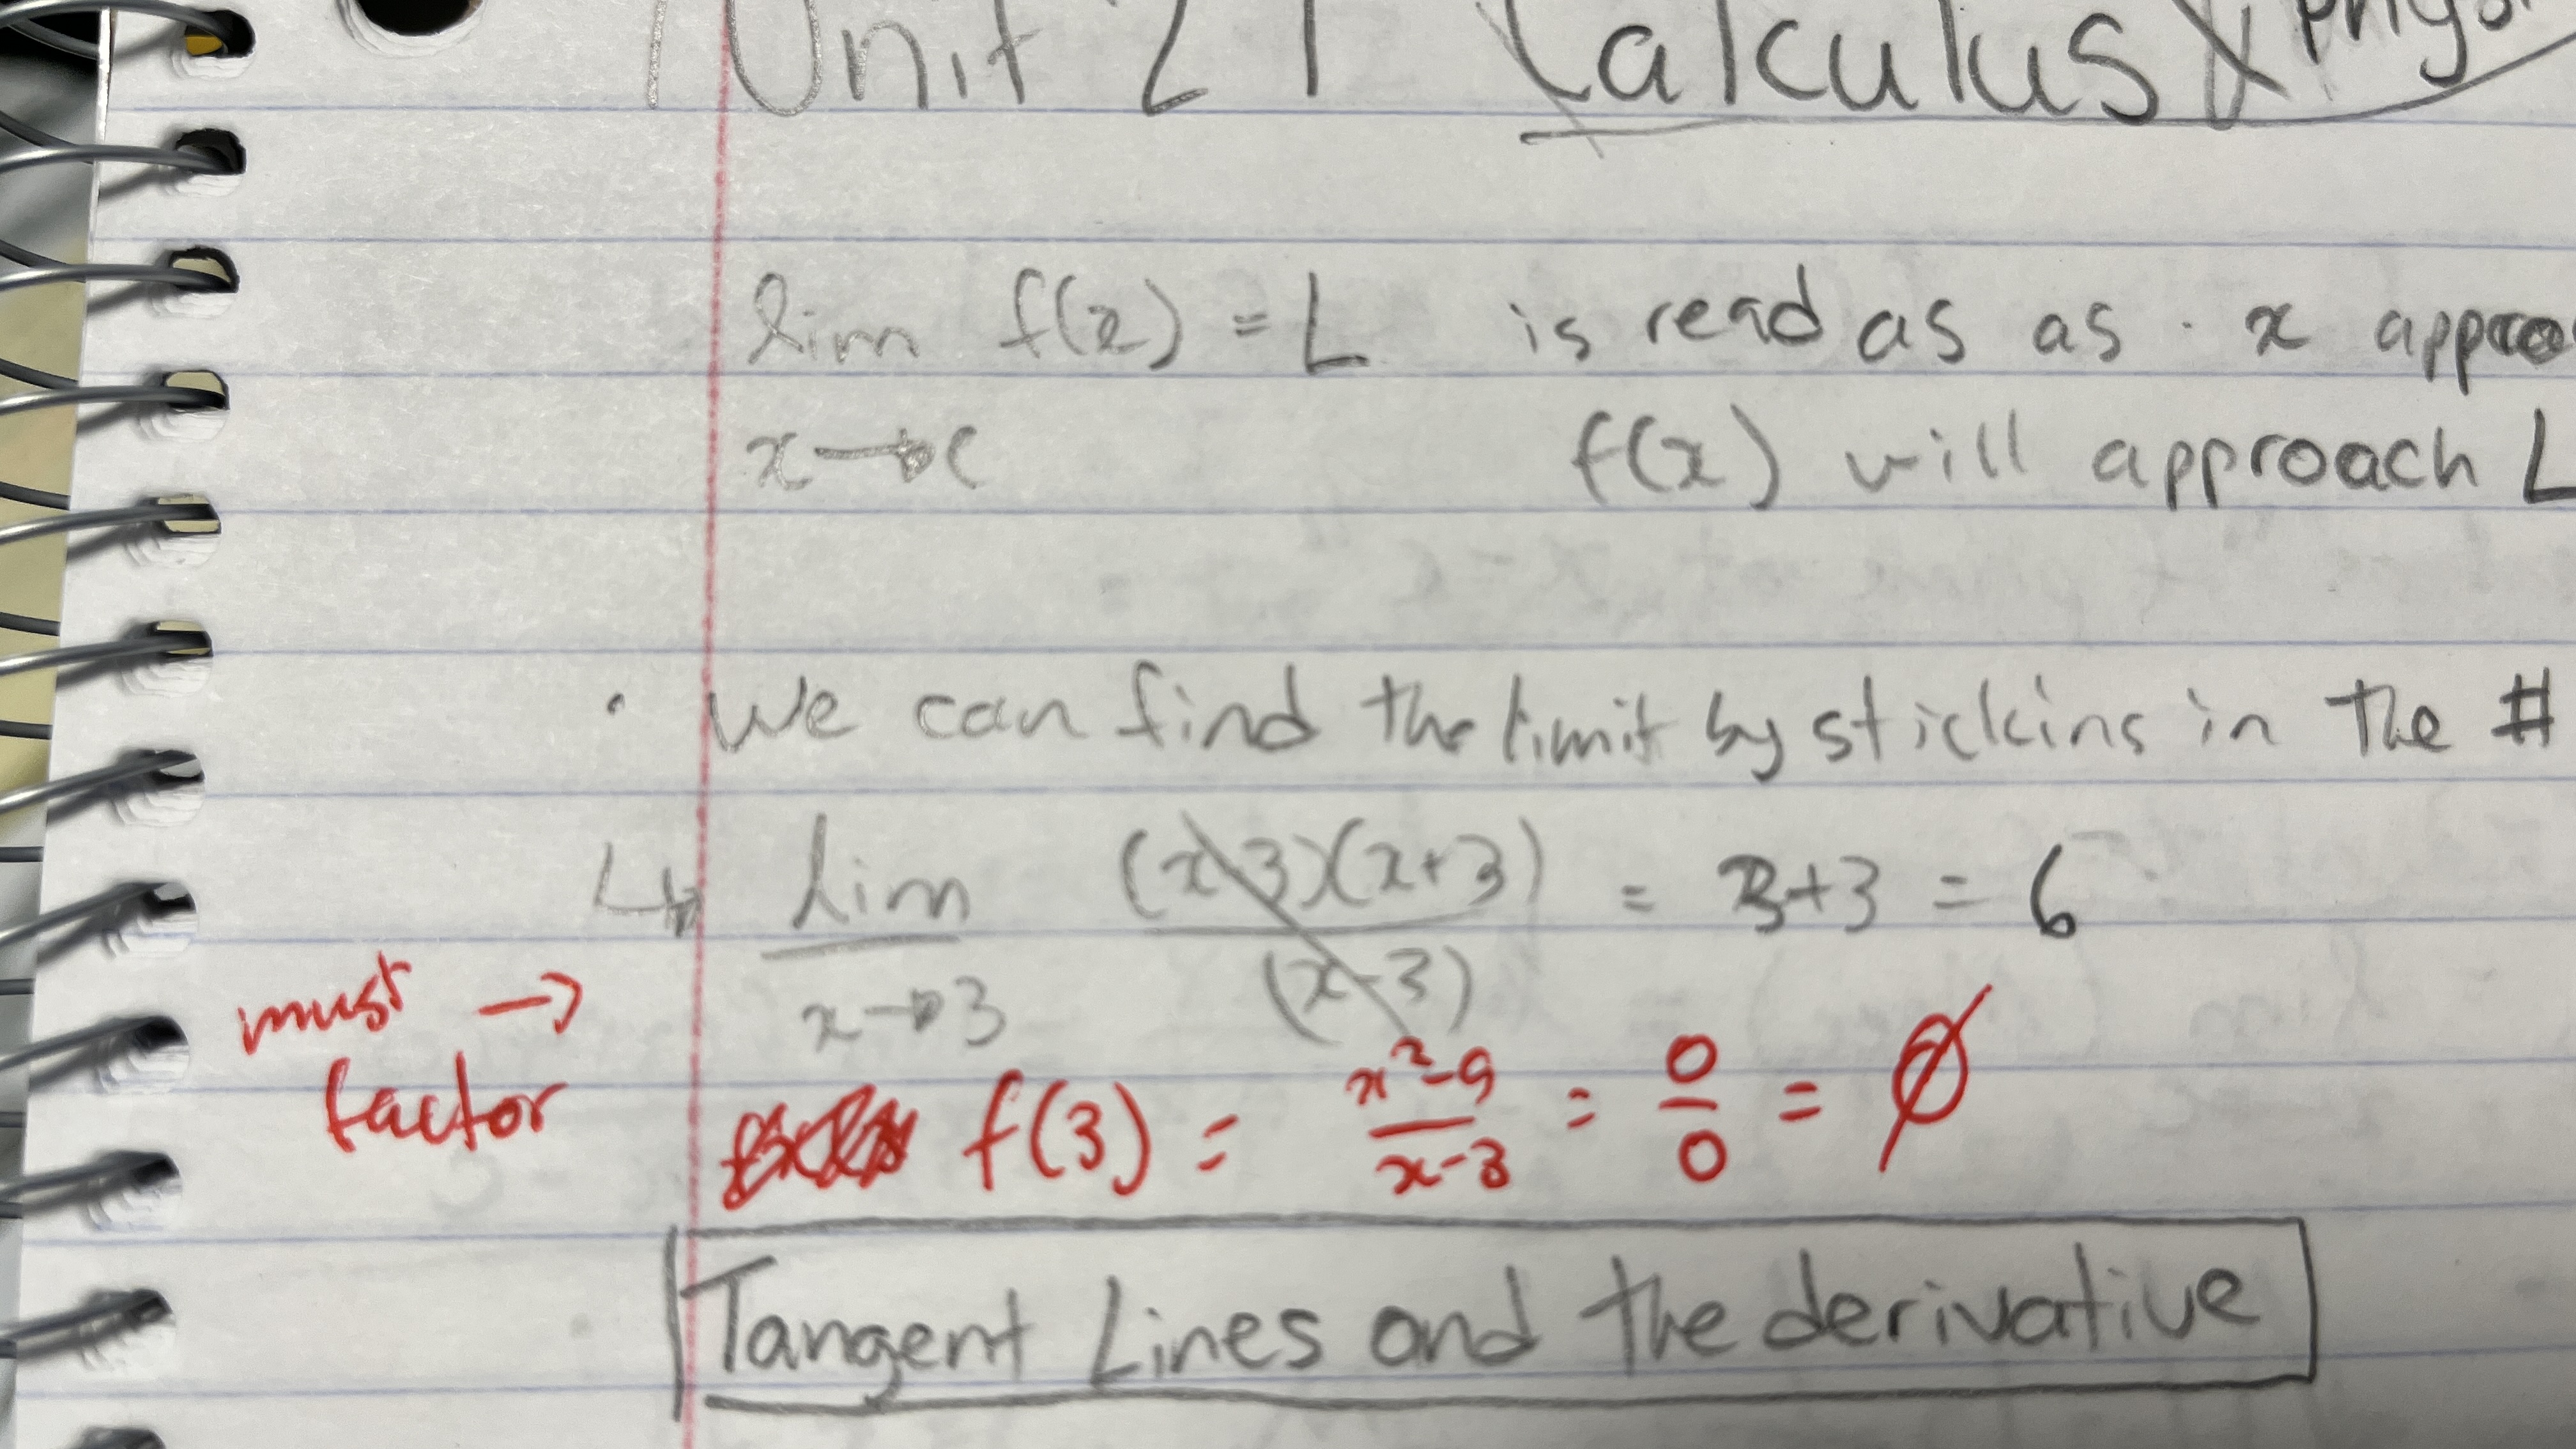 Unit 2 | Calculus X
lim f(x) = L is read as as · x
x→c f(x) will approach L
· We can find the limit by stickins in the #
↳ lim (x-3)(x+3) / (x-3) = 3+3 = 6
x→3
must → factor
f(3) = x²-9 / x-3 = 0/0 = ∅
Tangent Lines and the derivative